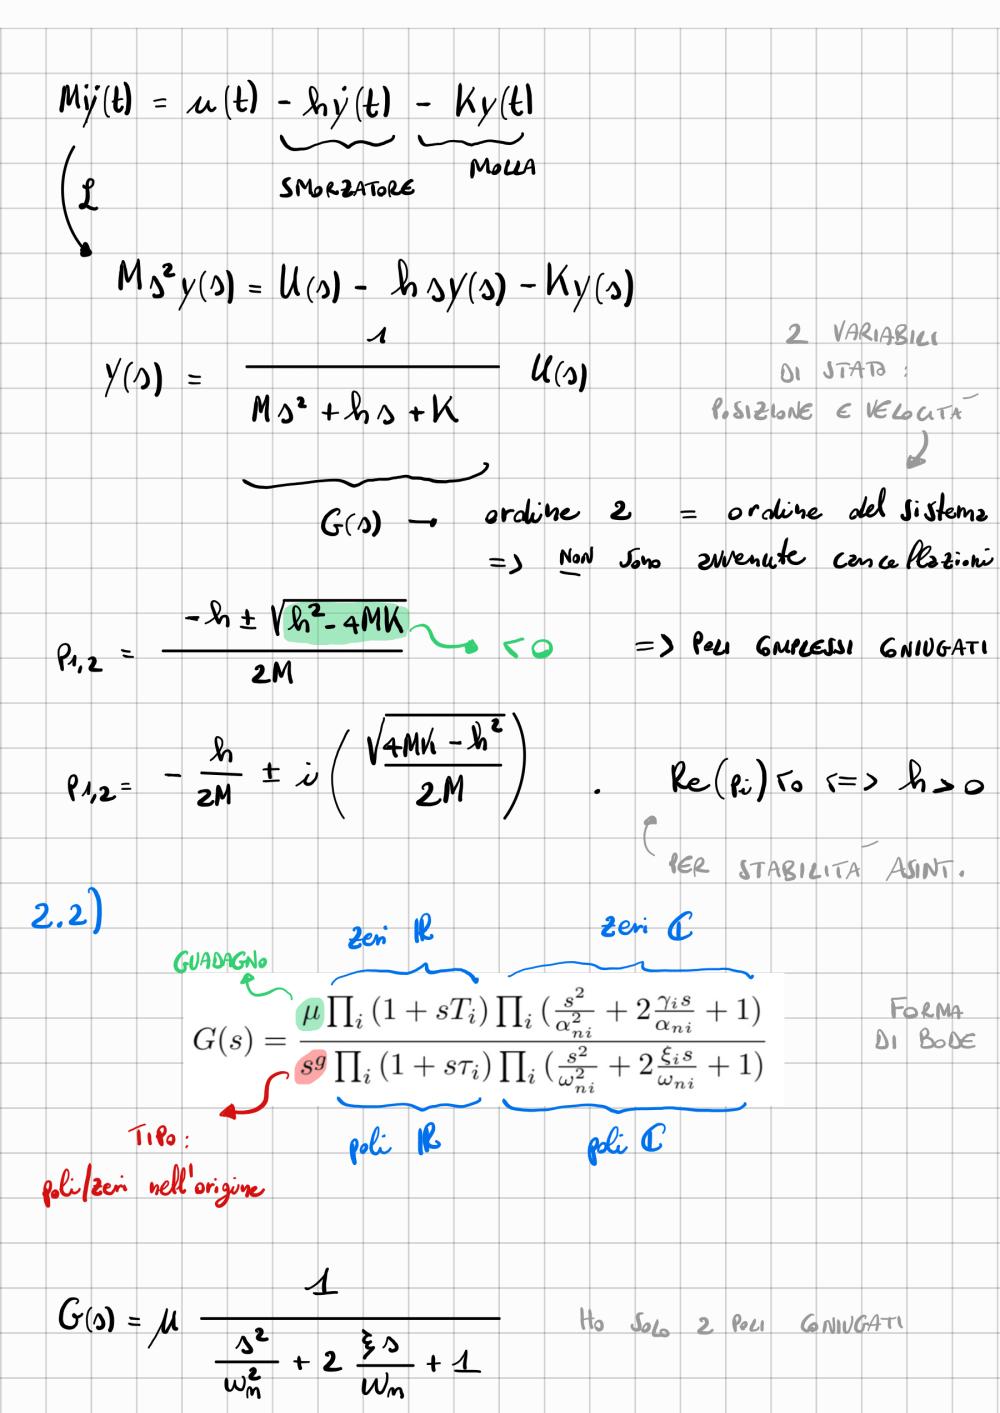 Mÿ(t) = u(t) - hẏ(t) - Ky(t)
SMORZATORE
MOLLA
ℒ
Ms²y(s) = U(s) - hsy(s) - Ky(s)
Y(s) = 1 / (Ms² + hs + K) U(s)
2 VARIABILI
DI STATO :
POSIZIONE E VELOCITÀ
G(s) → ordine 2 = ordine del sistema
=> NON sono avvenute cancellazioni
P1,2 = (-h ± √(h² - 4MK)) / 2M < 0 => POLI COMPLESSI CONIUGATI
P1,2 = - h/2M ± i (√(4MK - h²) / 2M) . Re(Pi) < 0 <=> h > 0
PER STABILITÀ ASINT.
2.2)
zeri ℝ
zeri ℂ
GUADAGNO
G(s) = μ ∏i (1 + sTi) ∏i (s²/α²ni + 2 γis/αni + 1) / s^g ∏i (1 + sτi) ∏i (s²/ω²ni + 2 ξis/ωni + 1)
FORMA
DI BODE
TIPO :
poli/zeri nell'origine
poli ℝ
poli ℂ
G(s) = μ 1 / (s²/ωn² + 2 ξs/ωn + 1)
HO SOLO 2 POLI CONIUGATI